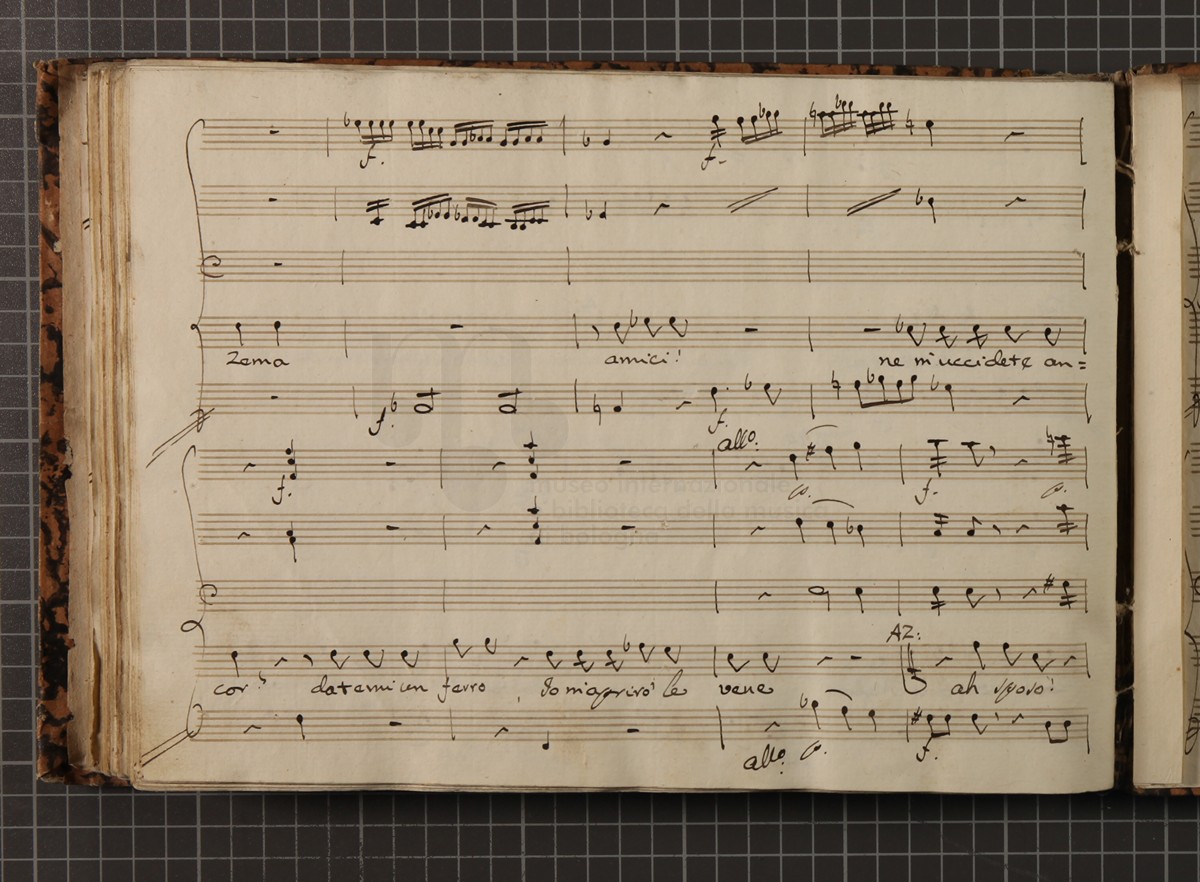 f.
f.
Zema amici! ne m'uccidete an=
f. f.
allo:
f. p. f. p.
AZ:
cor! datemi un ferro, Io m'aprirò le vene ah sposo!
allo: p. f.
museo internazionale
e biblioteca della musica
di bologna